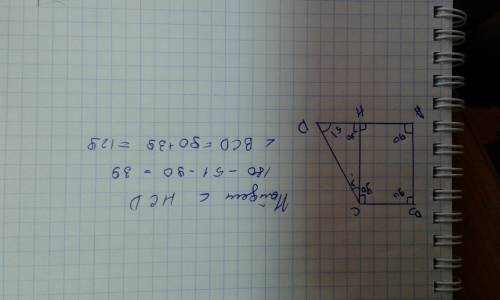 Найдем ∠ HCD
180 - 51 - 90 = 39
∠ BCD = 90 + 39 = 129
A
B
H
C
D
90
90
90
90
51